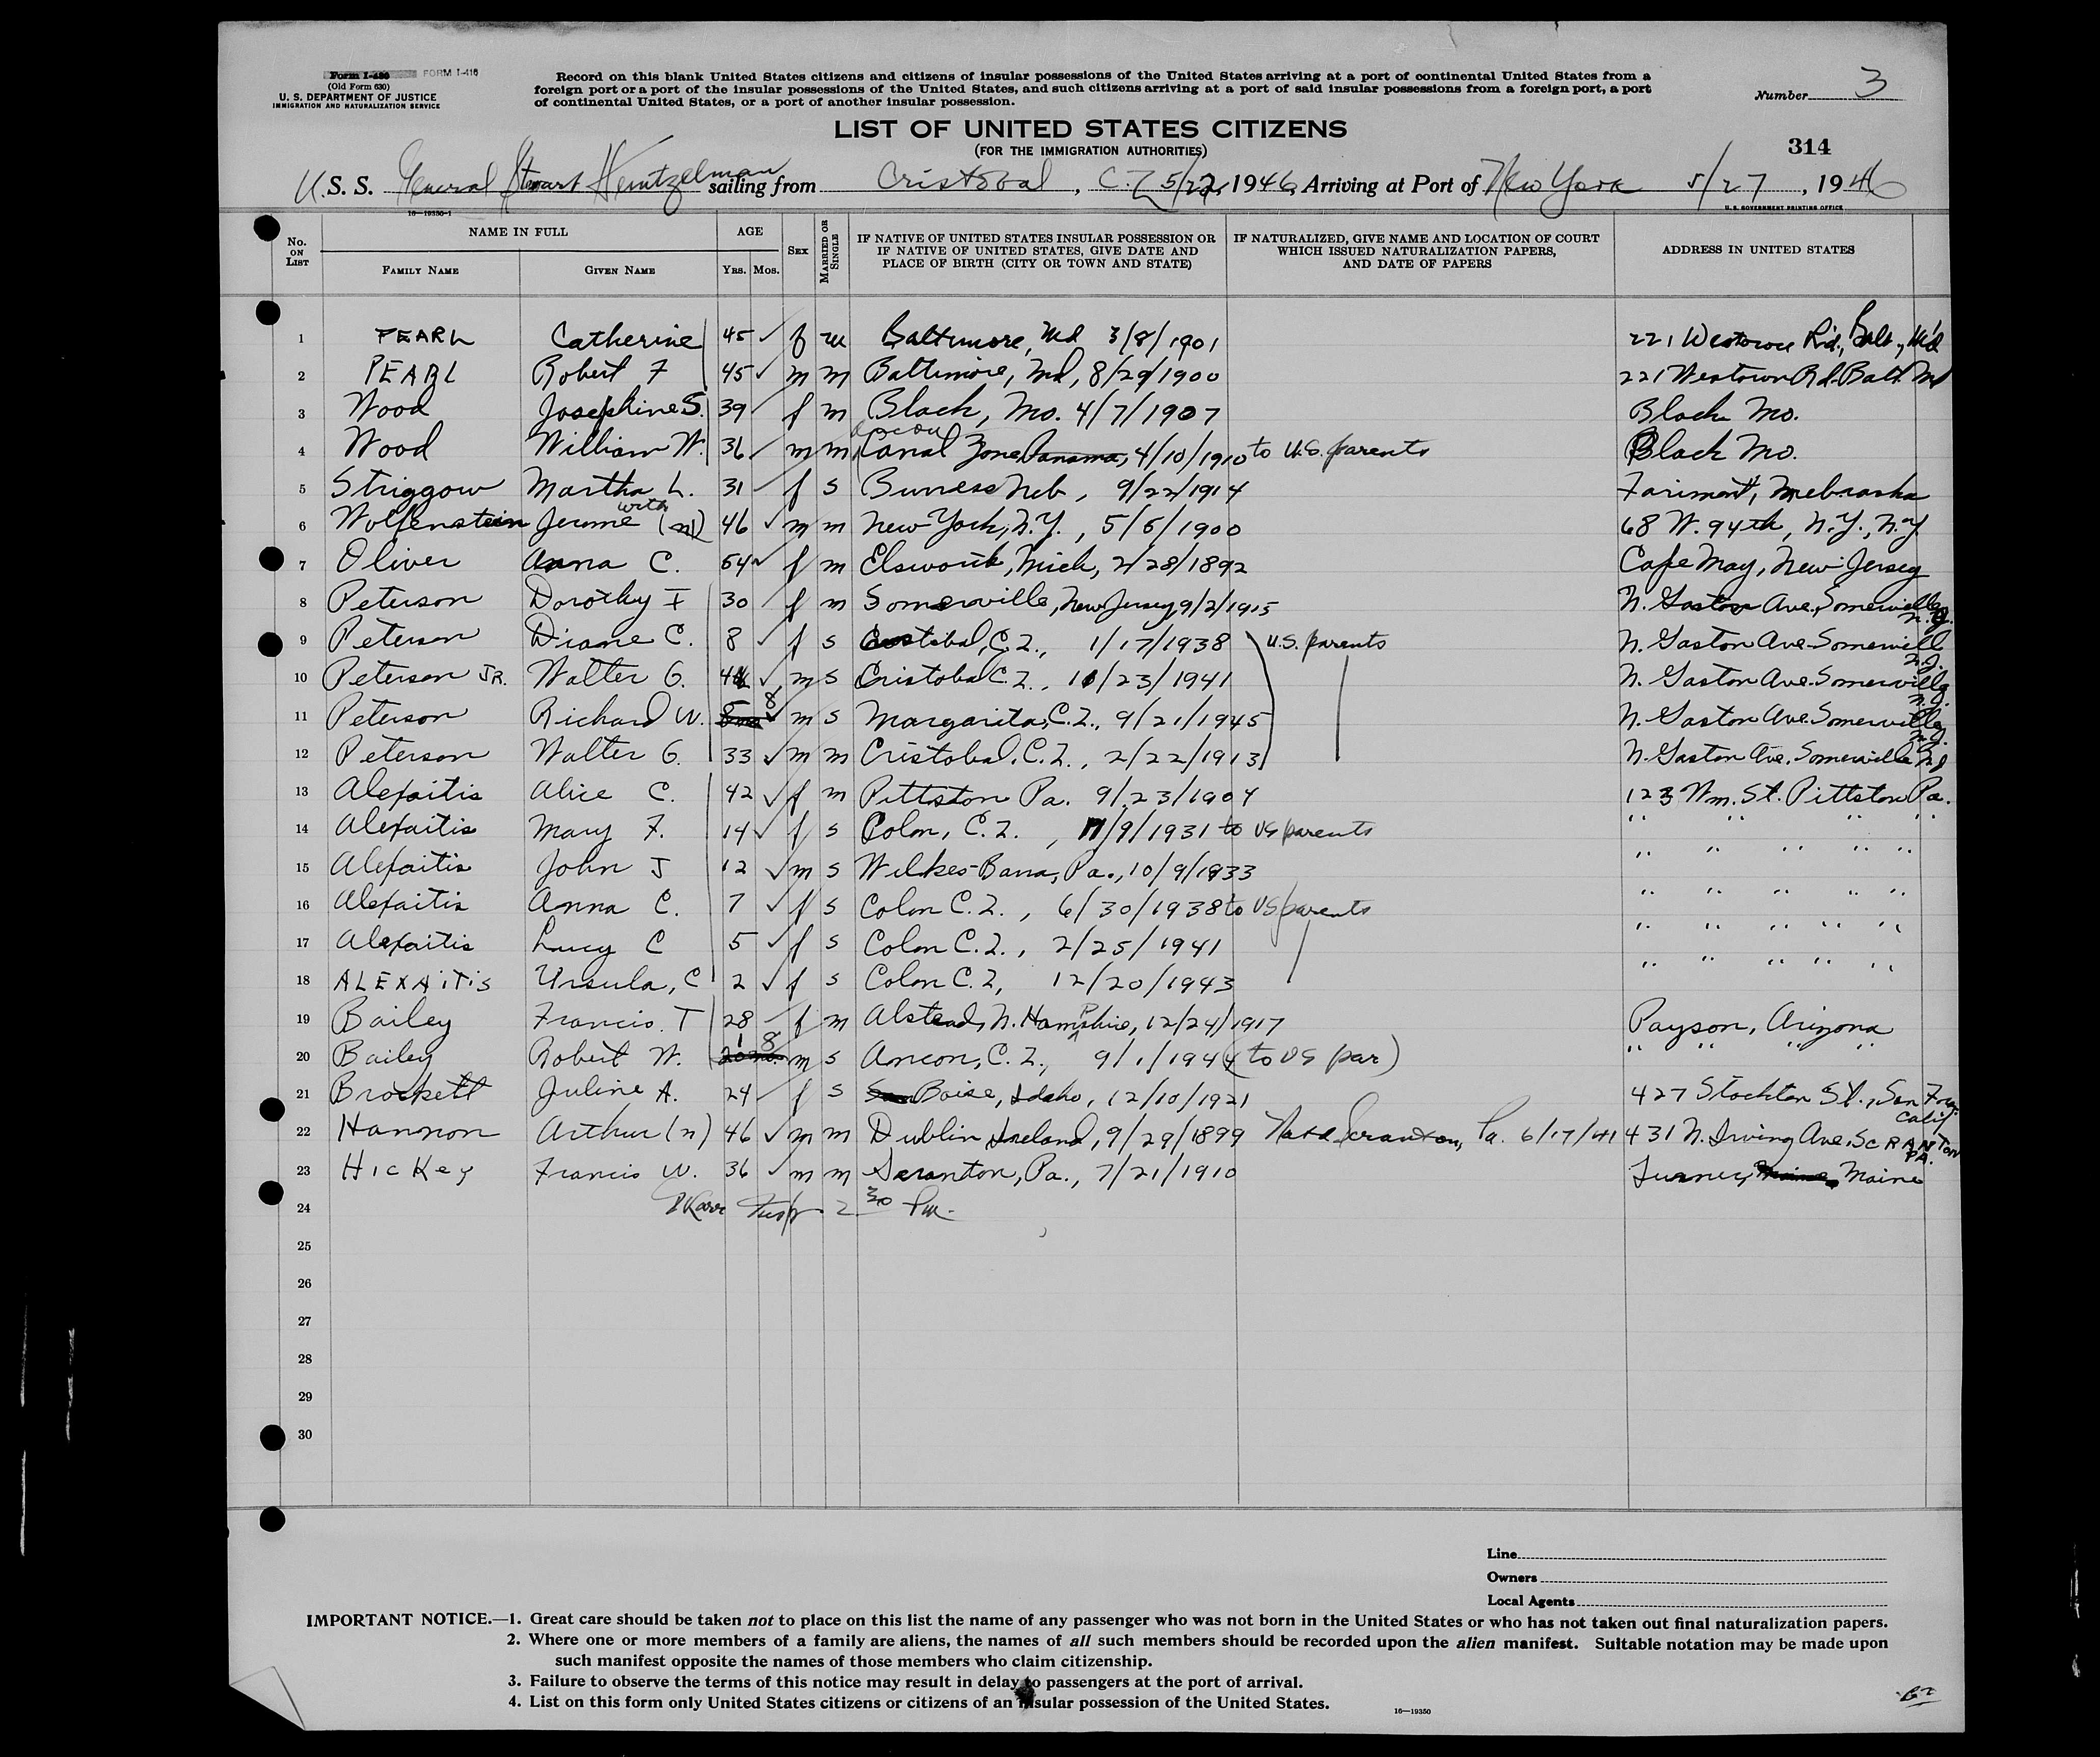 Form I-436 FORM I-416
(Old Form 630)
U. S. DEPARTMENT OF JUSTICE
IMMIGRATION AND NATURALIZATION SERVICE
Record on this blank United States citizens and citizens of insular possessions of the United States arriving at a port of continental United States from a
foreign port or a port of the insular possessions of the United States, and such citizens arriving at a port of said insular possessions from a foreign port, a port
of continental United States, or a port of another insular possession.
Number 3
LIST OF UNITED STATES CITIZENS
(FOR THE IMMIGRATION AUTHORITIES)
314
U.S. S. General Stuart Heintzelman sailing from Cristobal, C.Z. 5/22, 1946, Arriving at Port of New York 5/27, 1946
16—19350-1
U. S. GOVERNMENT PRINTING OFFICE
No. ON LIST
NAME IN FULL
FAMILY NAME
GIVEN NAME
AGE
YRS. MOS.
SEX
MARRIED OR SINGLE
IF NATIVE OF UNITED STATES INSULAR POSSESSION OR
IF NATIVE OF UNITED STATES, GIVE DATE AND
PLACE OF BIRTH (CITY OR TOWN AND STATE)
IF NATURALIZED, GIVE NAME AND LOCATION OF COURT
WHICH ISSUED NATURALIZATION PAPERS,
AND DATE OF PAPERS
ADDRESS IN UNITED STATES
1 PEARL Catherine 45 f m Baltimore, Md 3/8/1901 221 Westowne Rd., Balt., Md
2 PEARL Robert F 45 m m Baltimore, Md, 8/29/1900 221 Westown Rd. Balt. Md
3 Wood Josephine S. 39 f m Black, Mo. 4/7/1907 Black Mo.
4 Wood William W. 36 m m Ancon Canal Zone Panama, 4/10/1910 to U.S. parents Black Mo.
5 Striggow Martha L. 31 f s Burress Neb, 9/22/1914 Fairmont, Nebraska
6 Wolfenstein Jerome 46 m m New York, N.Y., 5/5/1900 68 W. 94th, N.Y., N.Y
7 Oliver Anna C. 54 f m Elsworth, Mich, 2/28/1892 Cape May, New Jersey
8 Peterson Dorothy I 30 f m Somerville, New Jersey, 9/2/1915 N. Gaston Ave., Somerville N.J.
9 Peterson Diane C. 8 f s Cristobal, C.Z., 1/17/1938 U.S. parents N. Gaston Ave. Somerville N.J.
10 Peterson JR. Walter G. 4 m s Cristobal C.Z., 11/23/1941 N. Gaston Ave. Somerville N.J.
11 Peterson Richard W. 8 m s Margarita, C.Z., 9/21/1945 N. Gaston Ave. Somerville N.J.
12 Peterson Walter G. 33 m m Cristobal, C.Z., 2/22/1913 N. Gaston Ave. Somerville NJ
13 Alexaitis Alice C. 42 f m Pittston Pa. 9/23/1904 123 Wm. St. Pittston Pa.
14 Alexaitis Mary F. 14 f s Colon, C.Z., 11/9/1931 to US parents " " " "
15 Alexaitis John J 12 m s Wilkes-Barra, Pa., 10/9/1933 " " " " "
16 Alexaitis Anna C. 7 f s Colon C.Z., 6/30/1938 to US parents " " " " "
17 Alexaitis Lucy C 5 f s Colon C.Z., 2/25/1941 " " " " "
18 ALEXAITIS Ursula, C 2 f s Colon C.Z, 12/20/1943 " " " " "
19 Bailey Francis. T 28 f m Alstead, N. Hampshire, 12/24/1917 Payson, Arizona
20 Bailey Robert W. 20 mo. 1 8 m s Ancon, C.Z., 9/1/1944 (to US par) " " " "
21 Brockett Juline A. 24 f s San Boise, Idaho, 12/10/1921 427 Stockton St., San Fran Calif
22 Hannon Arthur (n) 46 m m Dublin Ireland, 9/29/1899 Natd. Scranton, Pa. 6/17/41 431 N. Irving Ave. SCRANTON PA.
23 HicKey Francis W. 36 m m Scranton, Pa., 7/21/1910 Turner, Maine Maine
24 Insp 2 30 Pm.
25
26
27
28
29
30
Line
Owners
Local Agents
IMPORTANT NOTICE.—1. Great care should be taken not to place on this list the name of any passenger who was not born in the United States or who has not taken out final naturalization papers.
2. Where one or more members of a family are aliens, the names of all such members should be recorded upon the alien manifest. Suitable notation may be made upon
such manifest opposite the names of those members who claim citizenship.
3. Failure to observe the terms of this notice may result in delay to passengers at the port of arrival.
4. List on this form only United States citizens or citizens of an insular possession of the United States.
16—19350